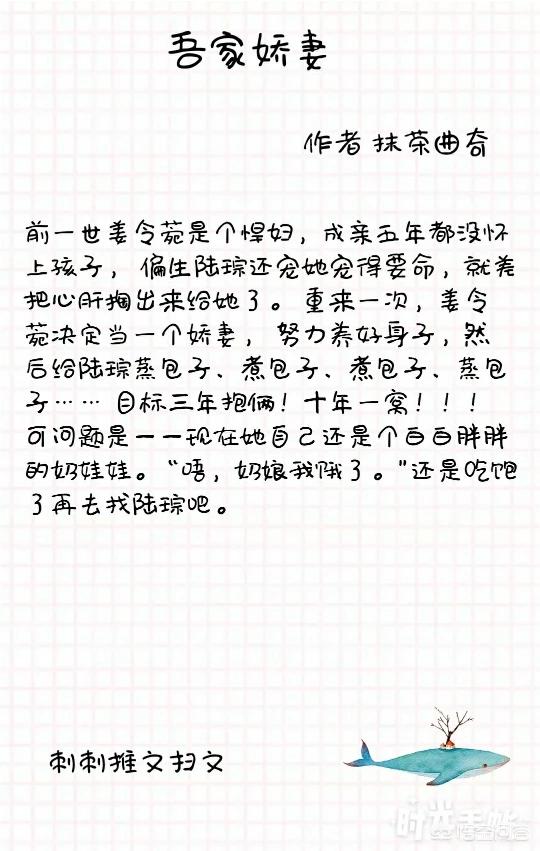 吾家娇妻
作者 抹茶曲奇
前一世姜令菀是个悍妇，成亲五年都没怀
上孩子，偏生陆琮还宠她宠得要命，就差
把心肝掏出来给她了。重来一次，姜令
菀决定当一个娇妻，努力养好身子，然
后给陆琮蒸包子、煮包子、煮包子、蒸包
子…… 目标三年抱俩！十年一窝！！！
可问题是——现在她自己还是个白白胖胖
的奶娃娃。“唔，奶娘我饿了。”还是吃饱
了再去找陆琮吧。
刺刺推文扫文
时光手帐
悟空问答